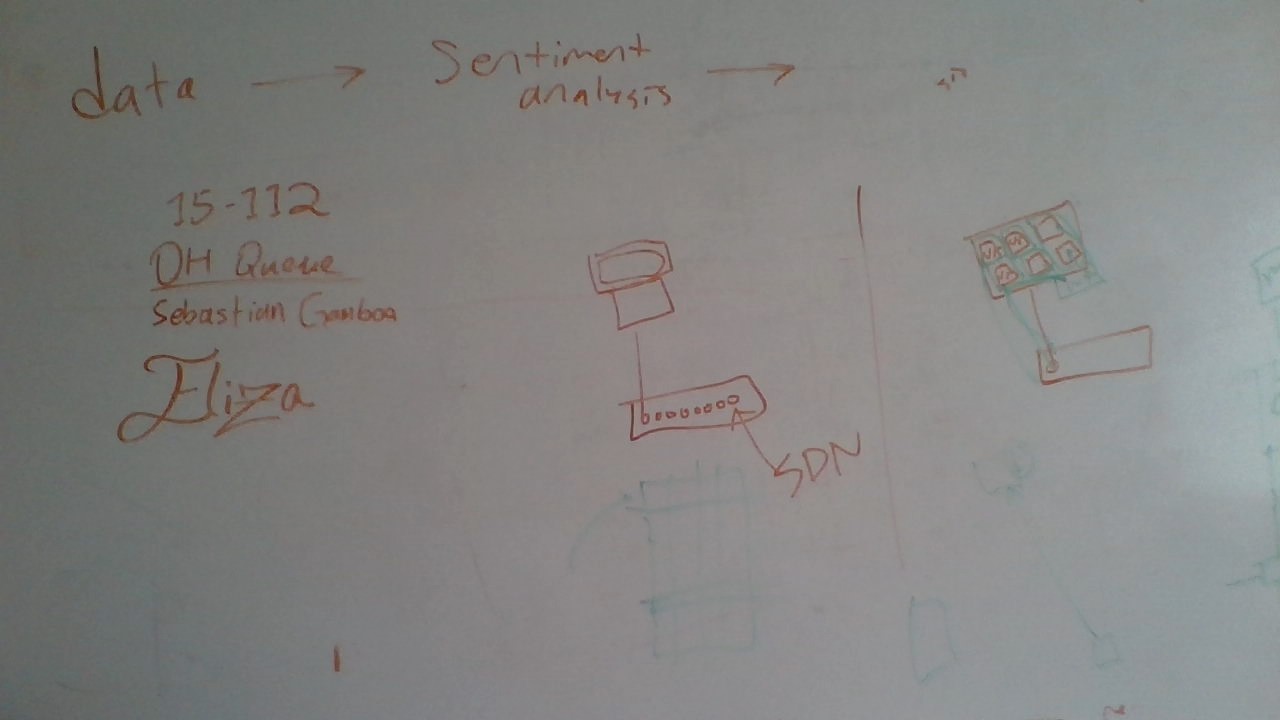 data → Sentiment →
analysis
15-112
OH Queue
Sebastian Gamboa
Eliza
SDN